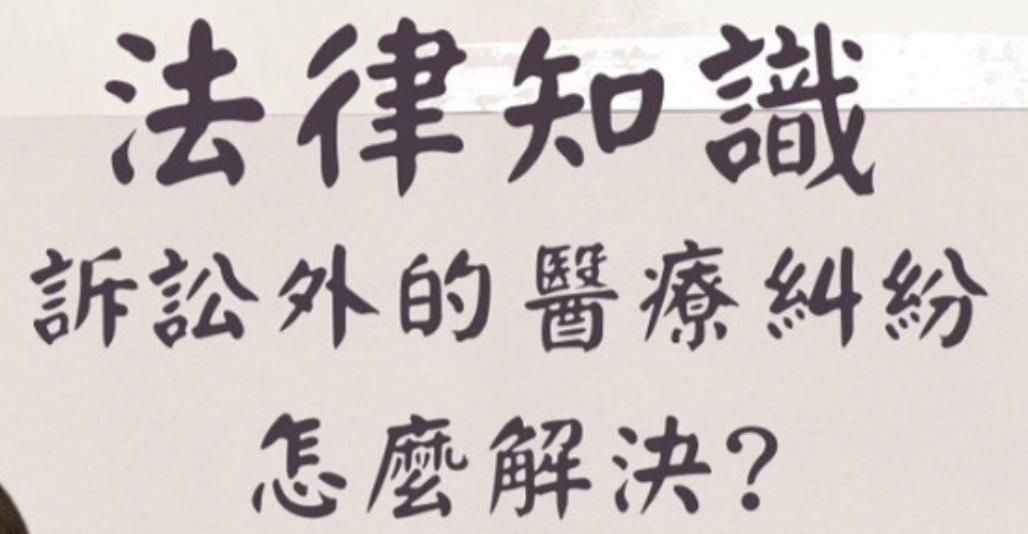 法律知識
訴訟外的醫療糾紛
怎麼解決?